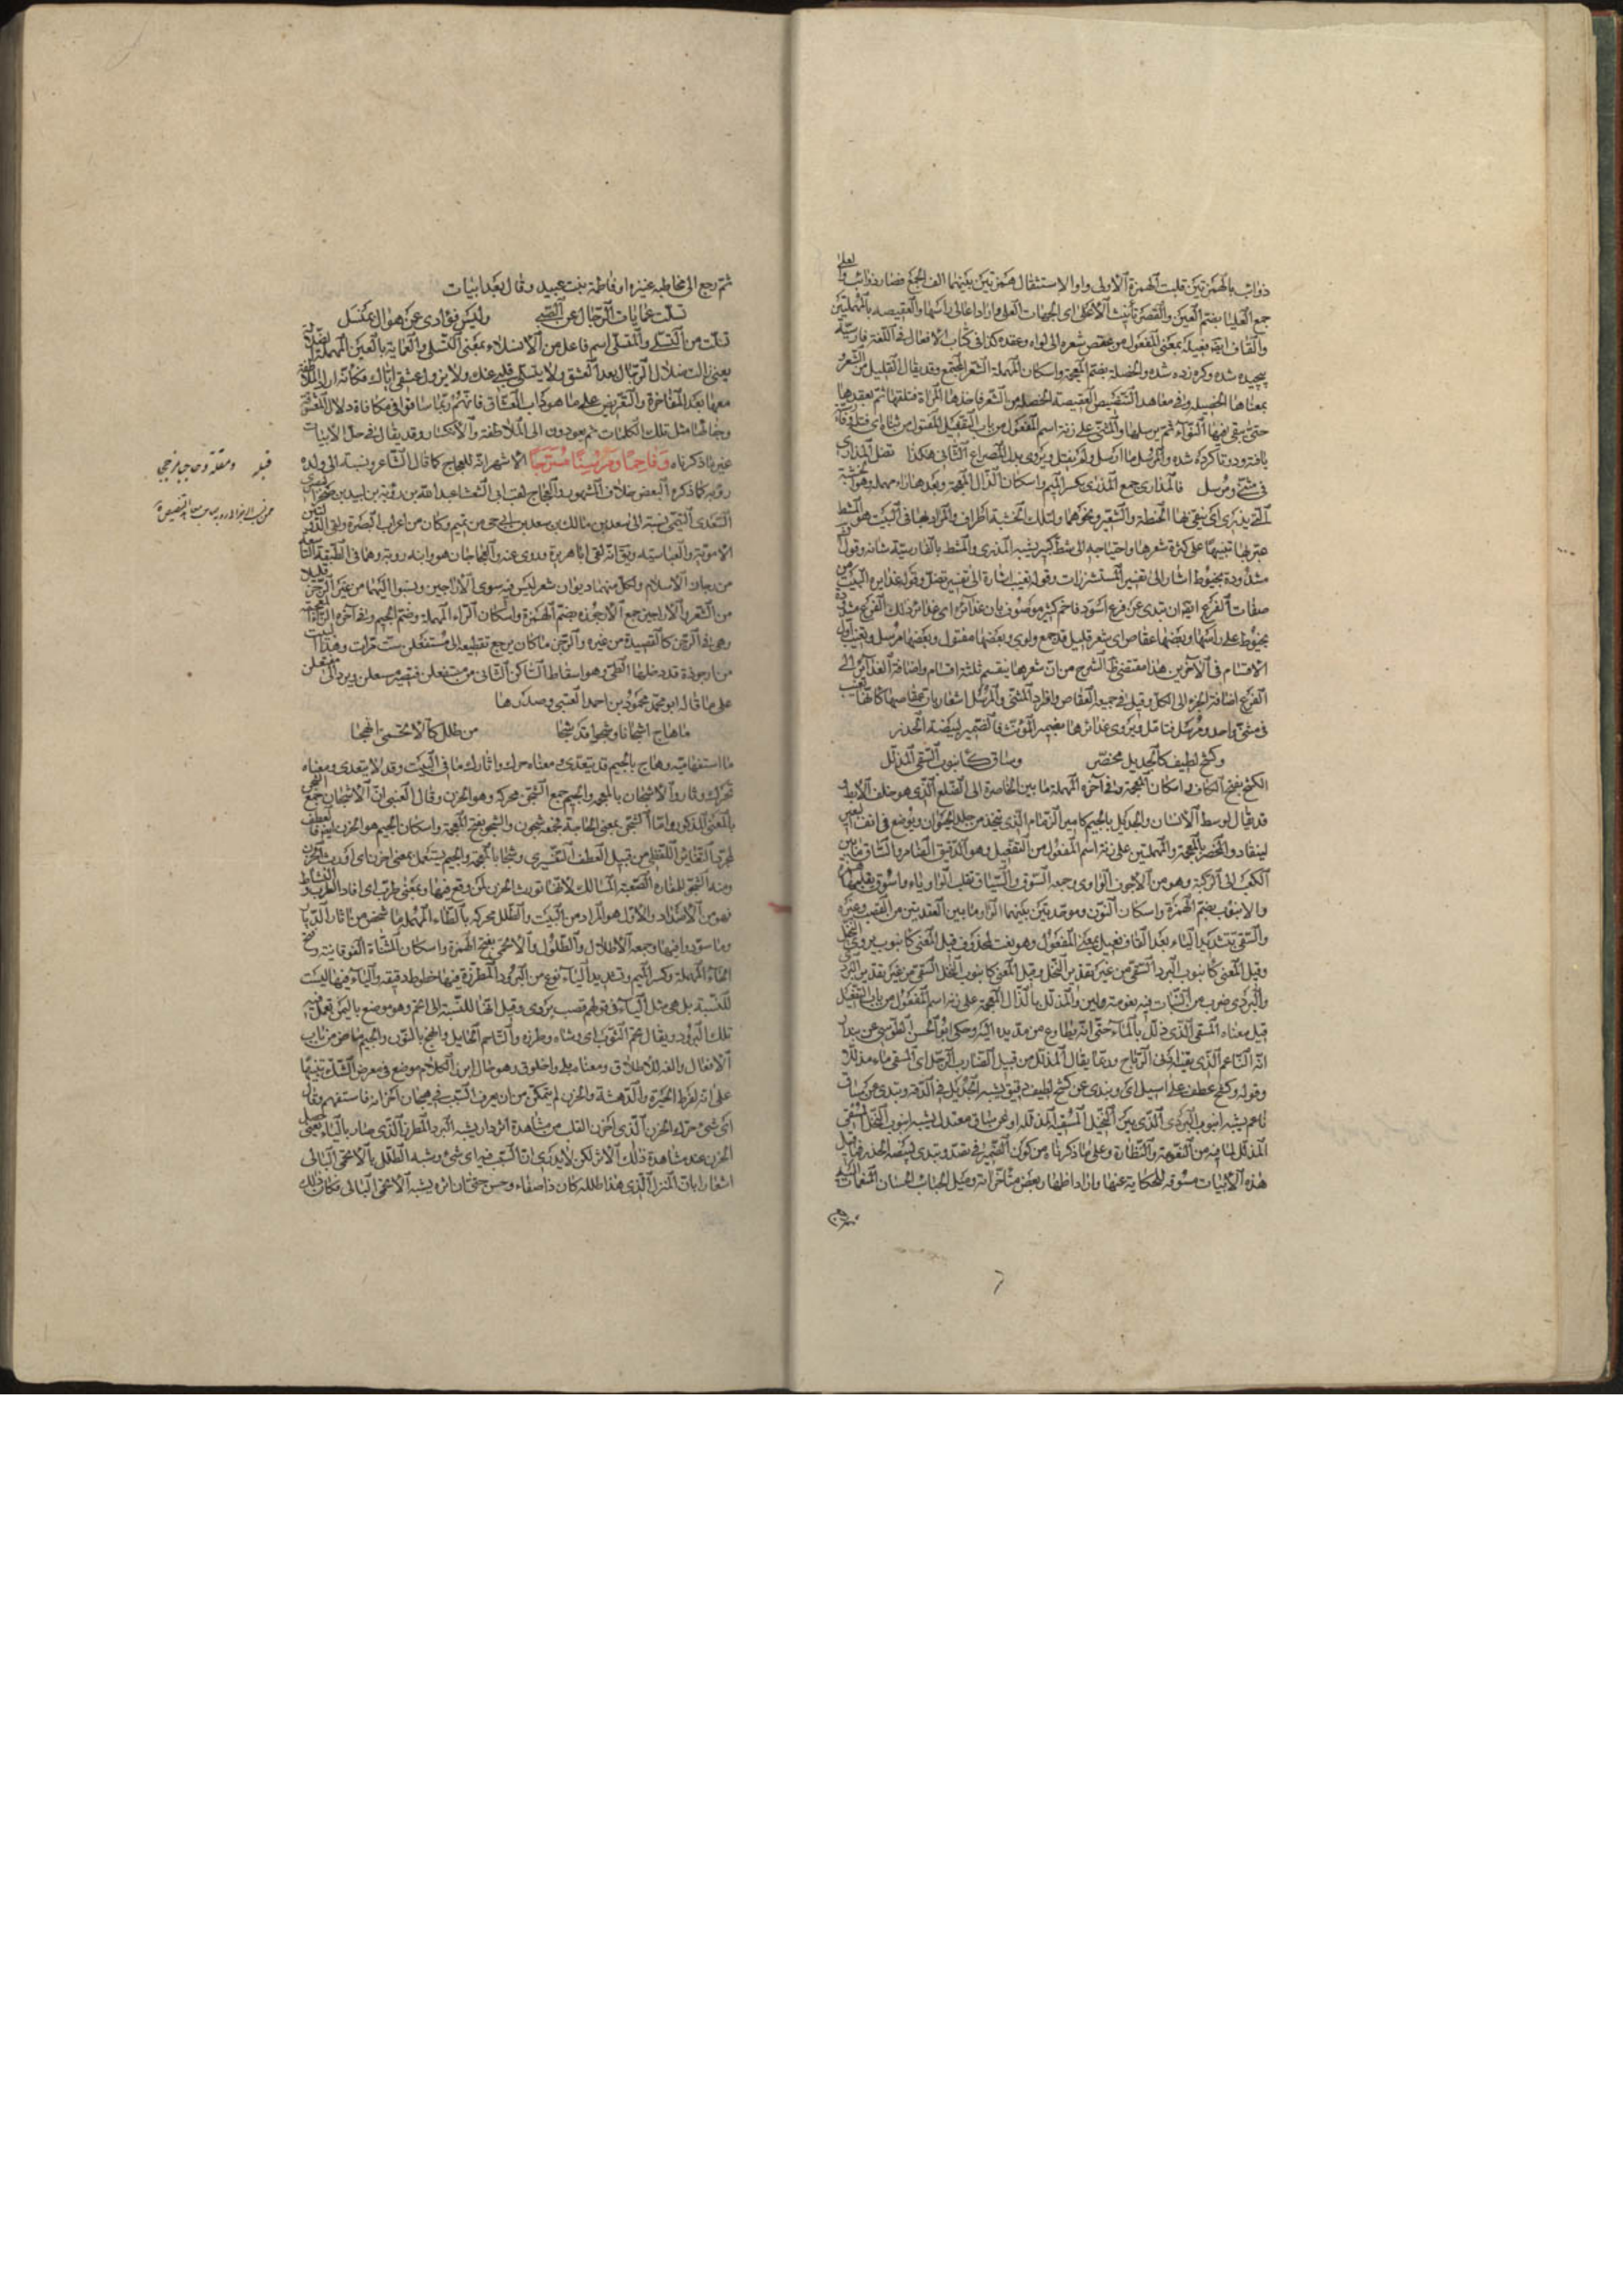 ذوائب بالهمزتين قلبت الهمزة الاولى واوا لاستثقال همزتين بينهما الف الجمع فصار ذوائب والعلى
جمع العليا بضم العين والقصر تأنيث الاعلى اى الجهات العلى واراد اعالى راسها والعقيصه بالمهملتين
والقاف فعيلة بمعنى المفعول من عقص شعره اى لواه وعقده كذا فى كتاب الافعال فى اللغة فارسيته
پيچيده شده وكره زده شده والخصلة بضم المعجمة واسكان المهملة الشعر المجتمع وقد يقال القليل من الشعر
بمعناها الخصيله وفى معاهد التنصيص العقيصة الخصلة من الشعر تاخذها المراة فتلتها ثم تعقدها
حتى يبقى فيها التواء ثم ترسلها والمثنى على زنة اسم المفعول من باب التفعيل المفتول من ثناه اى فتله
يافته ودوتا كرده شده والمرسل ما ارسل ولم يفتل ويروى بدل المصراع الثانى هكذا تضل المدارى
فى مثنى ومرسل فالمدارى جمع المدرى بكسر الميم واسكان الذال المعجمة وبعدها راء مهملة وهو الخشبة
التى يذرى اى ينقى بها الحنطة والشعير ونحوهما ولتلك الخشبة اطراف والمراد بها فى البيت هو المشط
عبر بها تنبيها على كثرة شعرها واحتياجه الى مشط كبير يشبه المذرى والمشط بالفارسية شانه وقوله
مشدودة بخيوط اشار الى تفسير المستشزرات وقوله تغيب اشارة الى تفسير تضل وقوله غدايره البيت من
صفات الفرع
بخيوط على راسها وبعضها عقاص اى شعر قليل قد جمع ولوى وبعضها مفتول وبعضها مرسل وتغيب اول
الاقسام فى الآخرين هذا مقتضى ظ الشرح من ان شعرها ينقسم ثلثة اقسام واضافة الغدائر الى
الفرع اضافة الجزء الى الكل وقيل فى جمعه العقاص وافراد المثنى والمرسل اشعار بان عقاصها كانها تغيب
فى مثنى واحد ومرسل فتامل ويروى غدائرها بضمير المؤنث فالضمير لبيضة الخدر
وكشح لطيف كالجديل مخصر وساق كانبوب السقى المذلل
الكشح بفتح الكاف واسكان المعجمة وفى آخره المهملة ما بين الخاصرة الى الضلع الذى هو خلف الابط
قد يقال لوسط الانسان والجديل بالجيم كامير الزمام الذى يتخذ من جلد الحيوان ويوضع فى انف البعير
لينقاد والمخصر بالمعجمة والمهملتين على زنة اسم المفعول من التفعيل وهو الدقيق الضامر والساق ما بين
الكعب الى الركبة وهو من الاجوف الواوى وجمعه السوق والسيقان تقلب الواو ياء
والانبوب بضم الهمزة واسكان النون وموحدتين بينهما الواو ما بين العقدتين من القصب وغيره
والسقى بتشديد الياء بعد القاف فعيل بمعنى المفعول وهو نعت لمحذوف قيل المعنى كانبوب بردى النخل
وقيل المعنى كانبوب البردى السقى من غير تقدير النخل وقيل المعنى كانبوب النخل السقى من غير تقدير البرد
والبردى ضرب من النبات فيه نعومة ولين والمذلل بالذال المعجمة على زنة اسم المفعول من باب التفعيل
قيل معناه المسقى الذى ذلل بالماء حتى انه يطاوع من مد يده اليه وحكى ابو الحسن الطوسى عن
انه الناعم وربما يقال المذلل من قبيل
وقوله وكشح عطف على اسيل اى وتبدى عن كشح لطيف دقيق يشبه الجديل فى الدقة وتبدى عن ساق
ناعم يشبه انبوب البردى الذى بين النخيل المسقية المذللة او عن ساق معتدل يشبه انبوب النخل المسقى
المذلل لما فيه من النعومة والنظارة وعلى ما ذكرنا من كون الضمير فى تصد وتبدى لبيضة الخدر فما قيل
هذه الابيات مسوقة للحكاية عنها واراد اظهار بعض مآثرانه وميل الحباب الحسان المنعمات اليه
ثم رجع الى مخاطبة عنيزة او فاطمة بنت عبيد وقال بعد ابيات
تسلت عمايات الرجال عن الصبى وليس فؤادى عن هواك بمنسل
تسلت من التسلى والمنسلى اسم فاعل من الانسلاء بمعنى التسلى والعماية بالعين المهملة الضلالة
يعنى زالت ضلال الرجال بعد العشق ولا يتسلى قلبى عنك ولا يزول عشقى اياك فكانه اراد الملاطفة
معها بعد المفاخرة والتعريض على ما هو داب العشاق فانهم ربما ساقوا فى مكافاة دلال المعشوقة
وجفائها مثل تلك الكلمات ثم يعودون الى الملاطفة والانكسار وقد يقال فى حل الابيات
غير ما ذكرناه وَفاحِمًا وَمَرْسِنًا مُسَرَّجًا الاشهر انه للعجاج كما قال الشاعر ونسبته الى ولده
رؤبة كما ذكره البعض خلاف المشهور والعجاج لقب ابى الشعثاء عبد الله بن رؤبة بن لبيد بن صخر
السعدى التميمى نسبة الى سعد بن مالك بن سعد بن حى من تميم وكان من اعراب البصرة ولقى الدولتين
الاموية والعباسية ويق انه لقى ابا هريرة وروى عنه والعجاجان هو وابنه روبة وهما فى الطبقة الثانية
من رجاز الاسلام ولكل منهما ديوان شعر ليس فيه سوى الاراجيز ونسبوا اليهما من غير الرجز قليلا
من الشعر والاراجيز جمع الارجوزة بضم الهمزة واسكان الراء المهملة وضم الجيم وفى آخره الزاء المعجمة
وهى فى الرجز كالقصيدة من غيره والرجز ما كان يرجع تقطيعه الى مستفعلن ست مرات وهذا البيت
من ارجوزة قد دخلها الطى وهو اسقاط الساكن الثانى من مستفعلن فيصير مستعلن ويرد الى مفتعلن
على ما قاله ابو محمد محمود بن احمد العينى وصدرها
ما هاج اشجانا وشجوا قد شجا من طلل كالاتحمى انهجا
ما استفهامية وهاج بالجيم قد يتعدى معناه حرك واثار كما فى البيت وقد لا يتعدى ومعناه
تحرك وثار والاشجان بالمعجمة والجيم جمع الشجن محركة وهو الحزن وقال العينى ان الاشجان جمع الشجى
بالمعنى المذكور واما الشجن بمعنى الحاجة فجمعه شجون والشجو بفتح المعجمة واسكان الجيم هو الحزن ايضا فالعطف
لمجرد التغاير اللفظى من قبيل العطف التفسيرى وشجا بالمعجمة والجيم يستعمل بمعنى احزن اى اورث الحزن
ومنه الشجى للمفازة الصعبة المسالك لانها تورث الحزن لمن وقع فيها وبمعنى طرب اى افاد الطرب والنشاط
فهو من الاضداد والاول هو المراد من البيت والطلل محركة بالطاء المهملة ما شخص من آثار الديار
وما سود واضيها وجمعه الاطلال والطلول والاتحمى بفتح الهمزة واسكان المثناة الفوقانية وفتح
الحاء المهملة وكسر الميم وتشديد الياء نوع من البرود المطرزة فيها خطوط دقيقة والياء فيها ليست
للنسبة بل هى مثل الياء فى قولهم قصب بردى وقيل انها للنسبة الى اتحم وهو موضع باليمن تعمل فيه
تلك البرود ويقال تحم الثوب اى وشاه وطرزه والتاحم الحايل وانهج بالنون والجيم ماض من باب
الافعال والفه للاطلاق ومعناه بلى واخلوق وهو حال من الكلام موضع فى معرض الشك تنبيها
على انه لفرط الحيرة والدهشة والحزن لم يتمكن من ان يعرف السبب فى هيجان احزانه فاستفهم وقال
اى شئ حرك الحزن الذى احزن القلب من مشاهدة اثر دار يشبه البرد المطرز الذى صار باليا يعنى حصل
الحزن عند مشاهدة ذلك الاثر لكن لا يدرى ان السبب فيه اى شئ وشبه الطلل بالاتحمى البالى
اشعارا بان المنزل الذى هذا طلله كان ذا صفاء وحسن حتى ان اثره يشبه الاتحمى البالى فكان ذلك
قبله ومقلة وحاجبا مزججا